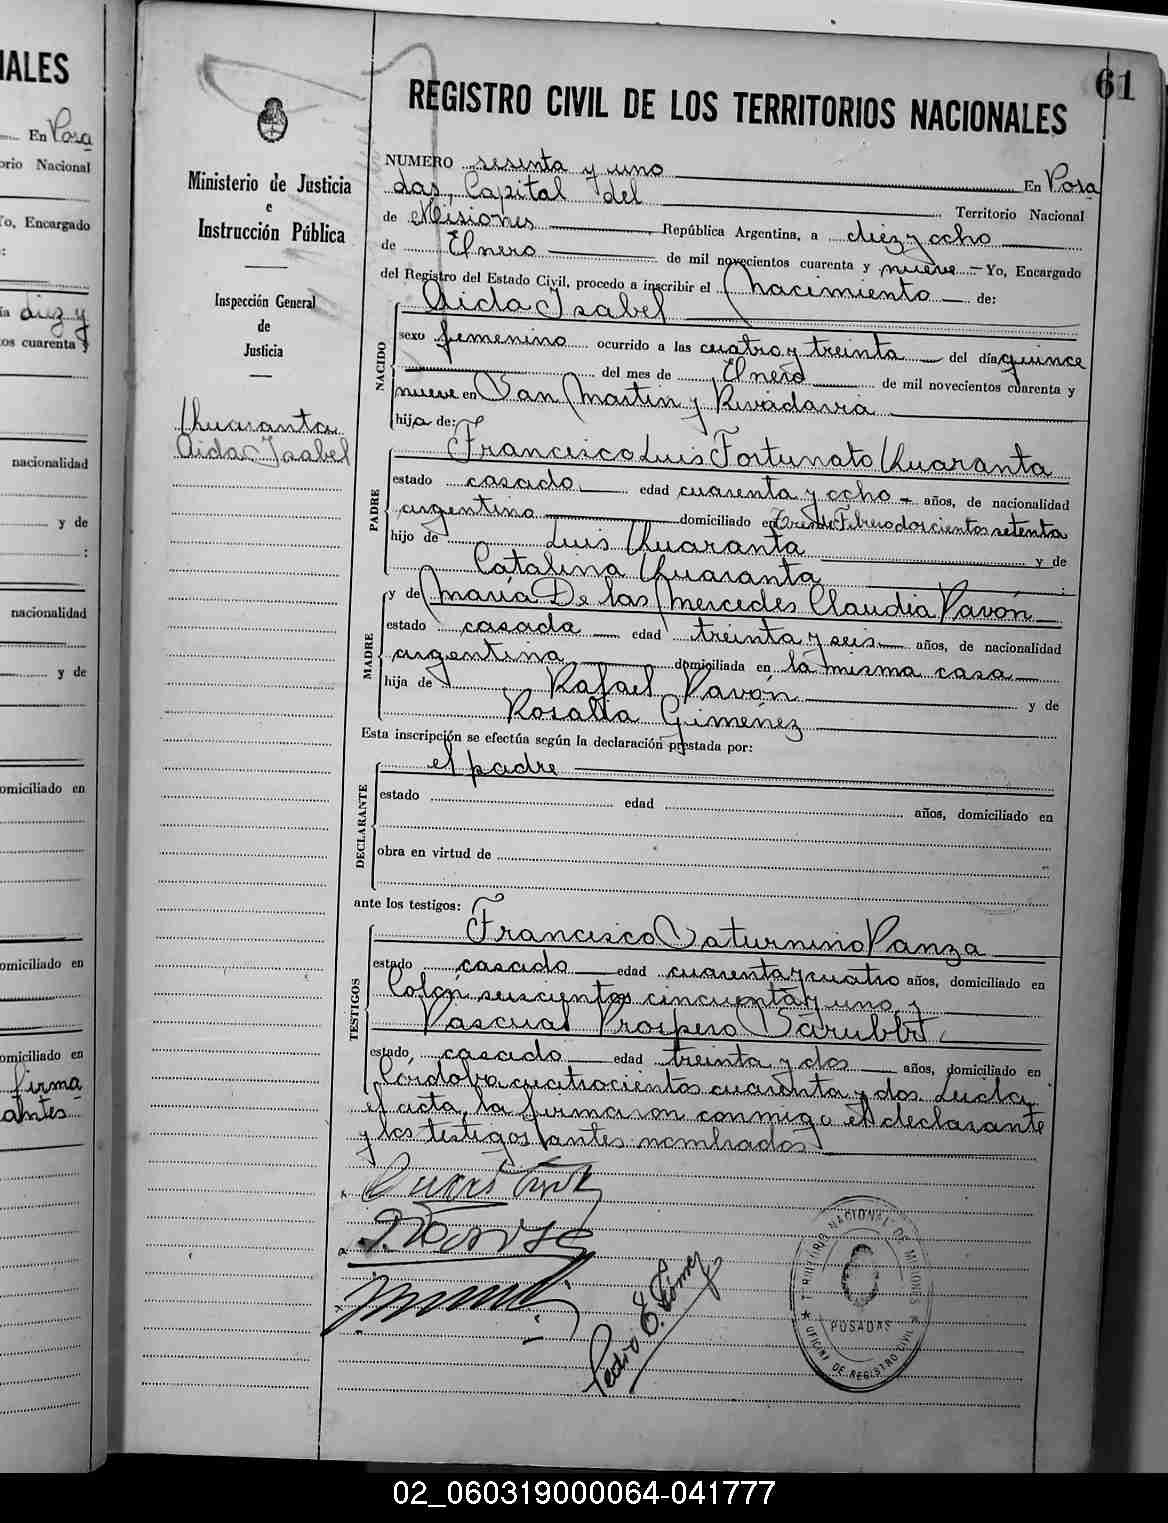 IALES
En Posa
orio Nacional
Yo, Encargado
ía diez y
os cuarenta y
nacionalidad
y de
:
nacionalidad
y de
omiciliado en
omiciliado en
omiciliado en
firma
antes
61
REGISTRO CIVIL DE LOS TERRITORIOS NACIONALES
Ministerio de Justicia
e
Instrucción Pública
Inspección General
de
Justicia
Quaranta
Aida Isabel
NUMERO sesenta y uno En Posa
das, Capital del Territorio Nacional
de Misiones República Argentina, a diez y ocho
de Enero de mil novecientos cuarenta y nueve Yo, Encargado
del Registro del Estado Civil, procedo a inscribir el Nacimiento de:
NACIDO
Aida Isabel
sexo femenino ocurrido a las cuatro y treinta del día quince
del mes de Enero de mil novecientos cuarenta y
nueve en San Martin y Rivadavia
hija de:
PADRE
Francisco Luis Fortunato Quaranta
estado casado edad cuarenta y ocho años, de nacionalidad
argentino domiciliado en Tres de Febrero doscientos setenta
hijo de Luis Quaranta y de
Catalina Quaranta :
MADRE
y de María De las Mercedes Claudia Pavón
estado casada edad treinta y seis años, de nacionalidad
argentina domiciliada en la misma casa
hija de Rafael Pavón y de
Rosalía Giménez
Esta inscripción se efectúa según la declaración prestada por:
DECLARANTE
el padre
estado edad años, domiciliado en
obra en virtud de
ante los testigos:
TESTIGOS
Francisco Saturnino Panza
estado casado edad cuarenta y cuatro años, domiciliado en
Colón seiscientos cincuenta y uno y
Pascual Prospero Barubbi
estado casado edad treinta y dos años, domiciliado en
Córdoba cuatrocientos cuarenta y dos. Leida
el acta, la firmaron conmigo el declarante
y los testigos antes nombrados
Pedro E. Gómez
TERRITORIO NACIONAL DE MISIONES
POSADAS
OFICINA DE REGISTRO CIVIL
02_060319000064-041777